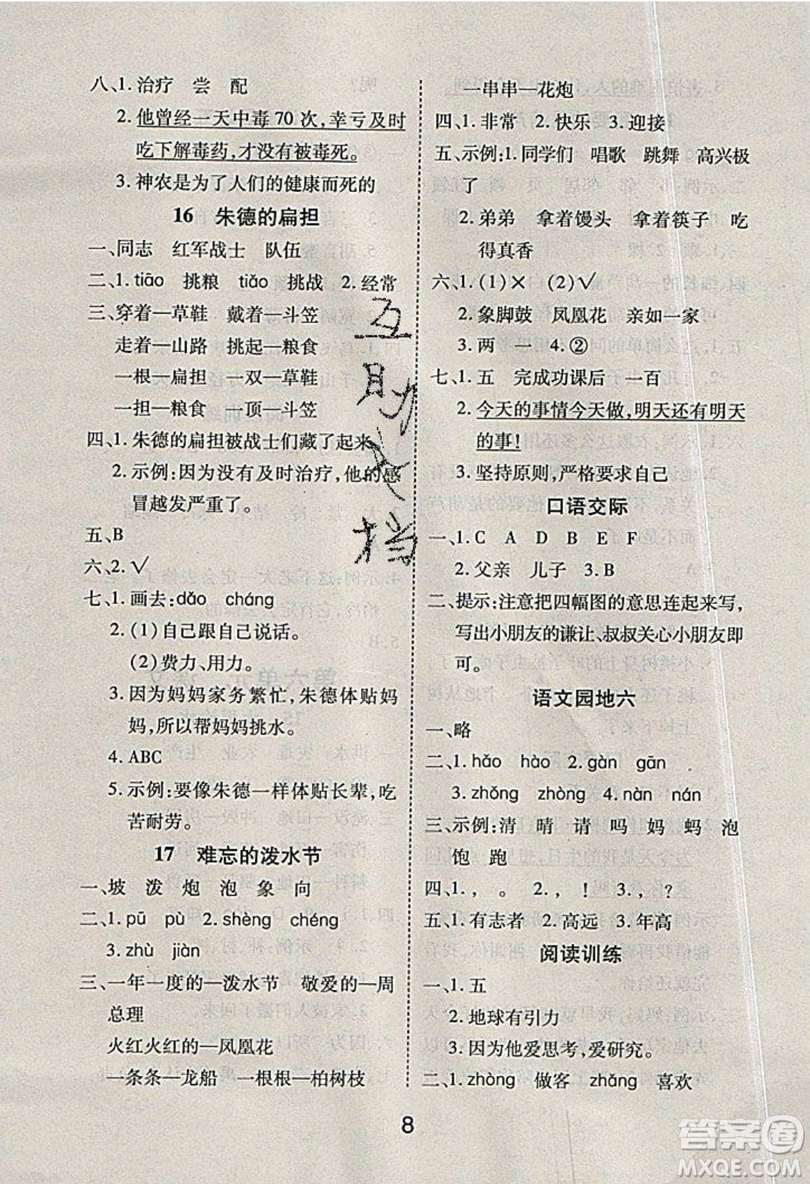 八、1.治疗 尝 配
2.他曾经一天中毒70次,幸亏及时
吃下解毒药,才没有被毒死。
3.神农是为了人们的健康而死的
16 朱德的扁担
一、同志 红军战士 队伍
二、1.tiāo 挑粮 tiǎo 挑战 2.经常
三、穿着—草鞋 戴着—斗笠
走着—山路 挑起—粮食
一根—扁担 一双—草鞋
一担—粮食 一顶—斗笠
四、1.朱德的扁担被战士们藏了起来。
2.示例:因为没有及时治疗,他的感
冒越发严重了。
五、B
六、2.√
七、1.画去:dǎo cháng
2.(1)自己跟自己说话。
(2)费力、用力。
3.因为妈妈家务繁忙,朱德体贴妈
妈,所以帮妈妈挑水。
4.ABC
5.示例:要像朱德一样体贴长辈,吃
苦耐劳。
17 难忘的泼水节
一、坡 泼 炮 泡 象 向
二、1.pū pù 2.shèng chéng
3.zhù jiàn
三、一年一度的—泼水节 敬爱的—周
总理
火红火红的—凤凰花
一条条—龙船 一根根—柏树枝
一串串—花炮
四、1.非常 2.快乐 3.迎接
五、示例:1.同学们 唱歌 跳舞 高兴极
了
2.弟弟 拿着馒头 拿着筷子 吃
得真香
六、1.(1)× (2)√
2.象脚鼓 凤凰花 亲如一家
3.两 一 4.②
七、1.五 完成功课后 一百
2.今天的事情今天做,明天还有明天
的事!
3.坚持原则,严格要求自己
口语交际
一、1.C A D B E F
2.父亲 儿子 3.B
二、提示:注意把四幅图的意思连起来写,
写出小朋友的谦让、叔叔关心小朋友即
可。
语文园地六
一、略
二、1.hǎo hào 2.gàn gān
3.zhǒng zhòng 4.nàn nán
三、示例:清 晴 请 吗 妈 蚂 泡
饱 跑
四、1., 。 2.。 ! 3.,?
五、1.有志者 2.高远 3.年高
阅读训练
一、1.五
2.地球有引力
3.因为他爱思考,爱研究。
二、1.zhòng 做客 zhǎng 喜欢
8
互助文档
答案圈
MXQE.COM